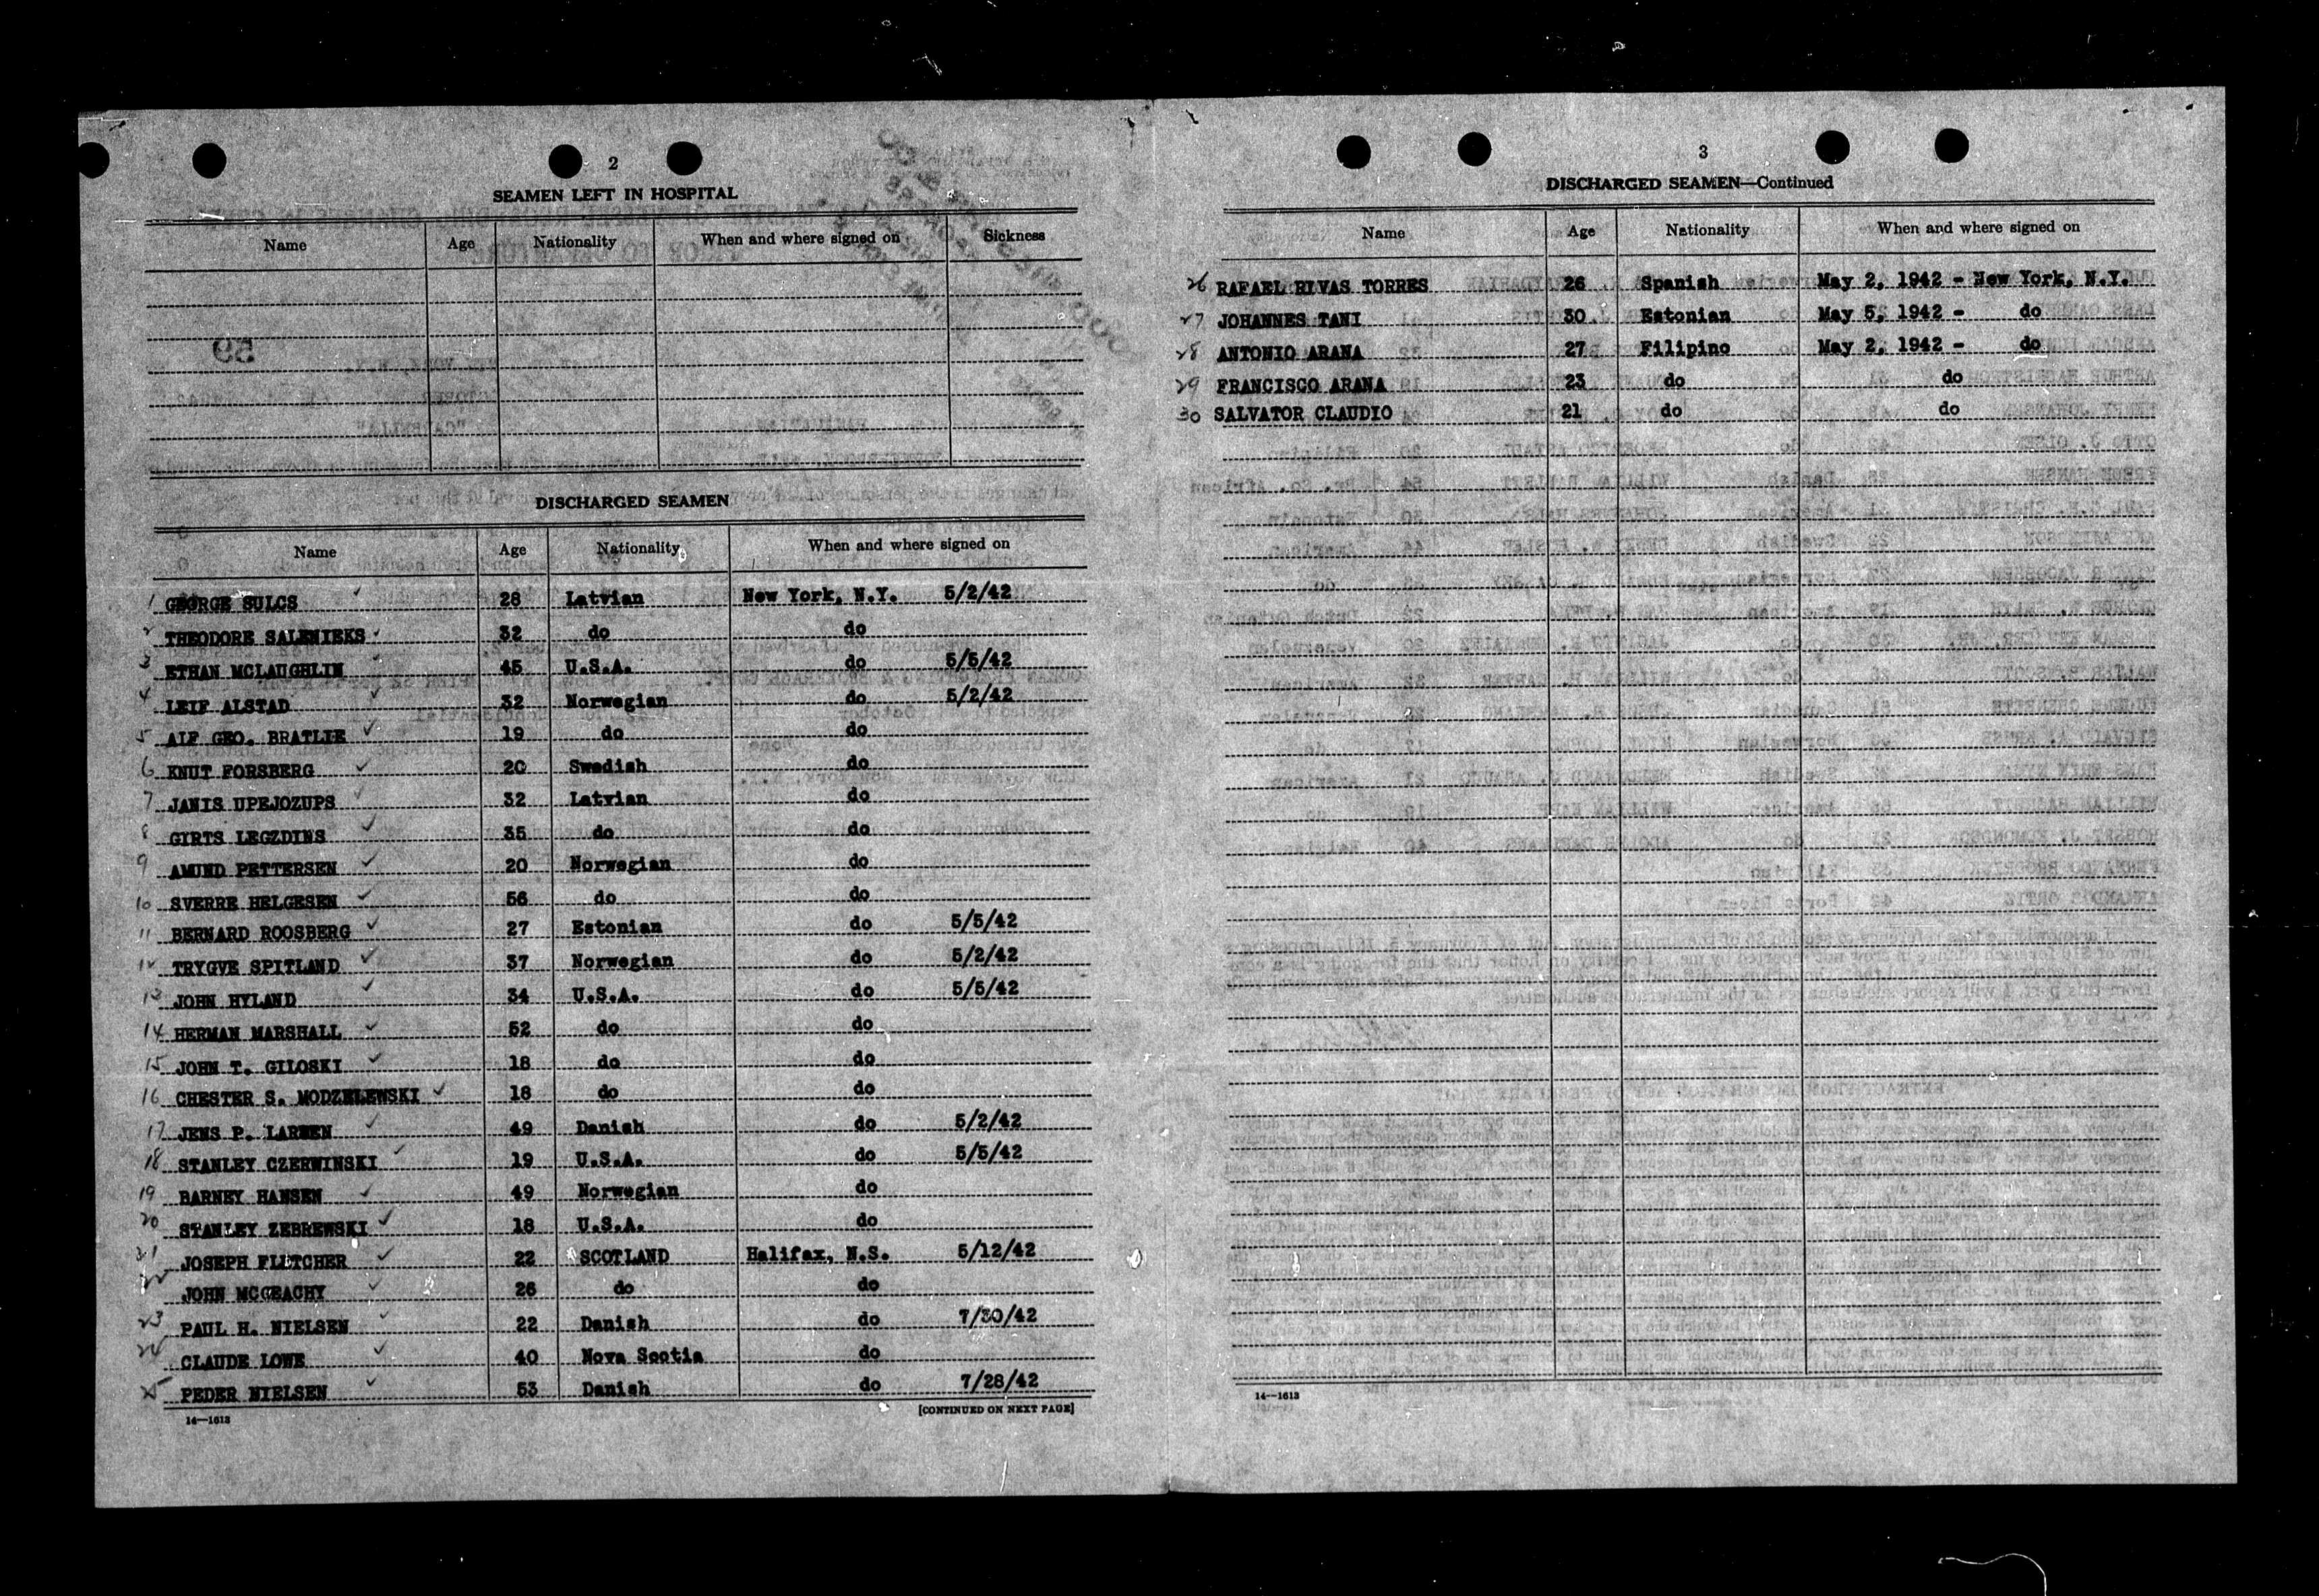 2
SEAMEN LEFT IN HOSPITAL
Name Age Nationality When and where signed on Sickness
59
DISCHARGED SEAMEN
Name Age Nationality When and where signed on
1 GEORGE SULCS ✓ 28 Latvian New York, N.Y. 5/2/42
2 THEODORE SALENIEKS ✓ 32 do do
3 ETHAN MCLAUGHLIN ✓ 45 U.S.A. do 5/5/42
4 LEIF ALSTAD ✓ 32 Norwegian do 5/2/42
5 ALF GEO. BRATLIE ✓ 19 do do
6 KNUT FORSBERG ✓ 20 Swedish do
7 JANIS UPEJOZUPS ✓ 32 Latvian do
8 GIRTS LEGZDINS ✓ 35 do do
9 AMUND PETTERSEN ✓ 20 Norwegian do
10 SVERRE HELGESEN ✓ 56 do do
11 BERNARD ROOSBERG ✓ 27 Estonian do 5/5/42
12 TRYGVE SPITLAND ✓ 37 Norwegian do 5/2/42
13 JOHN HYLAND ✓ 34 U.S.A. do 5/5/42
14 HERMAN MARSHALL ✓ 52 do do
15 JOHN T. GILOSKI ✓ 18 do do
16 CHESTER S. MODZELEWSKI ✓ 18 do do
17 JENS P. LARWEN ✓ 49 Danish do 5/2/42
18 STANLEY CZERWINSKI ✓ 19 U.S.A. do 5/5/42
19 BARNEY HANSEN ✓ 49 Norwegian do
20 STANLEY ZEBREWSKI ✓ 18 U.S.A. do
21 JOSEPH FLETCHER ✓ 22 SCOTLAND Halifax, N.S. 5/12/42
22 JOHN MCGEACHY ✓ 26 do do
23 PAUL H. NIELSEN ✓ 22 Danish do 7/30/42
24 CLAUDE LOWE ✓ 40 Nova Scotia do
25 PEDER NIELSEN ✓ 53 Danish do 7/28/42
14—1613
[CONTINUED ON NEXT PAGE]
3
DISCHARGED SEAMEN—Continued
Name Age Nationality When and where signed on
26 RAFAEL RIVAS TORRES 26 Spanish May 2, 1942 - New York, N.Y.
27 JOHANNES TANI 30 Estonian May 5, 1942 - do
28 ANTONIO ARANA 27 Filipino May 2, 1942 - do
29 FRANCISCO ARANA 23 do do
30 SALVATOR CLAUDIO 21 do do
14—1613